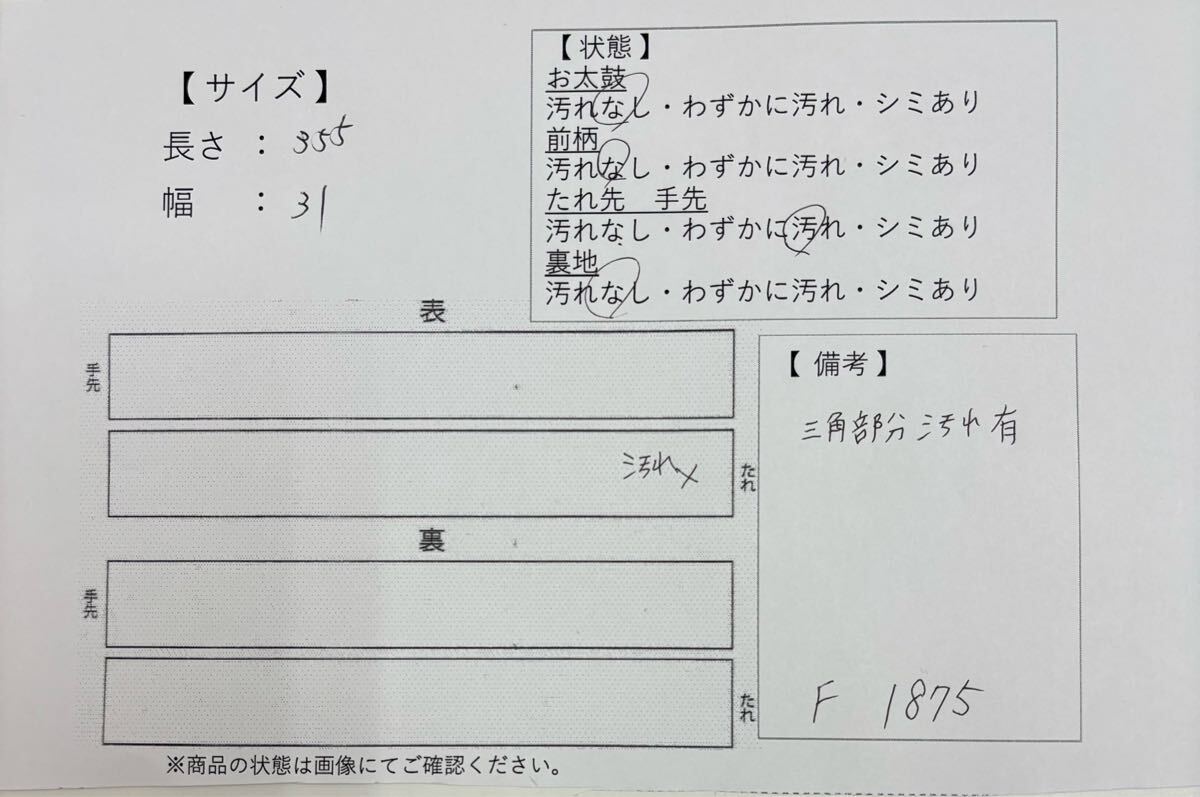 【 サイズ 】
長さ ： 355
幅 ： 31
【 状態 】
お太鼓
汚れなし・わずかに汚れ・シミあり
前柄
汚れなし・わずかに汚れ・シミあり
たれ先　手先
汚れなし・わずかに汚れ・シミあり
裏地
汚れなし・わずかに汚れ・シミあり
表
手先
汚れ×
たれ
裏
手先
たれ
【 備考 】
三角部分汚れ有
F 1875
※商品の状態は画像にてご確認ください。